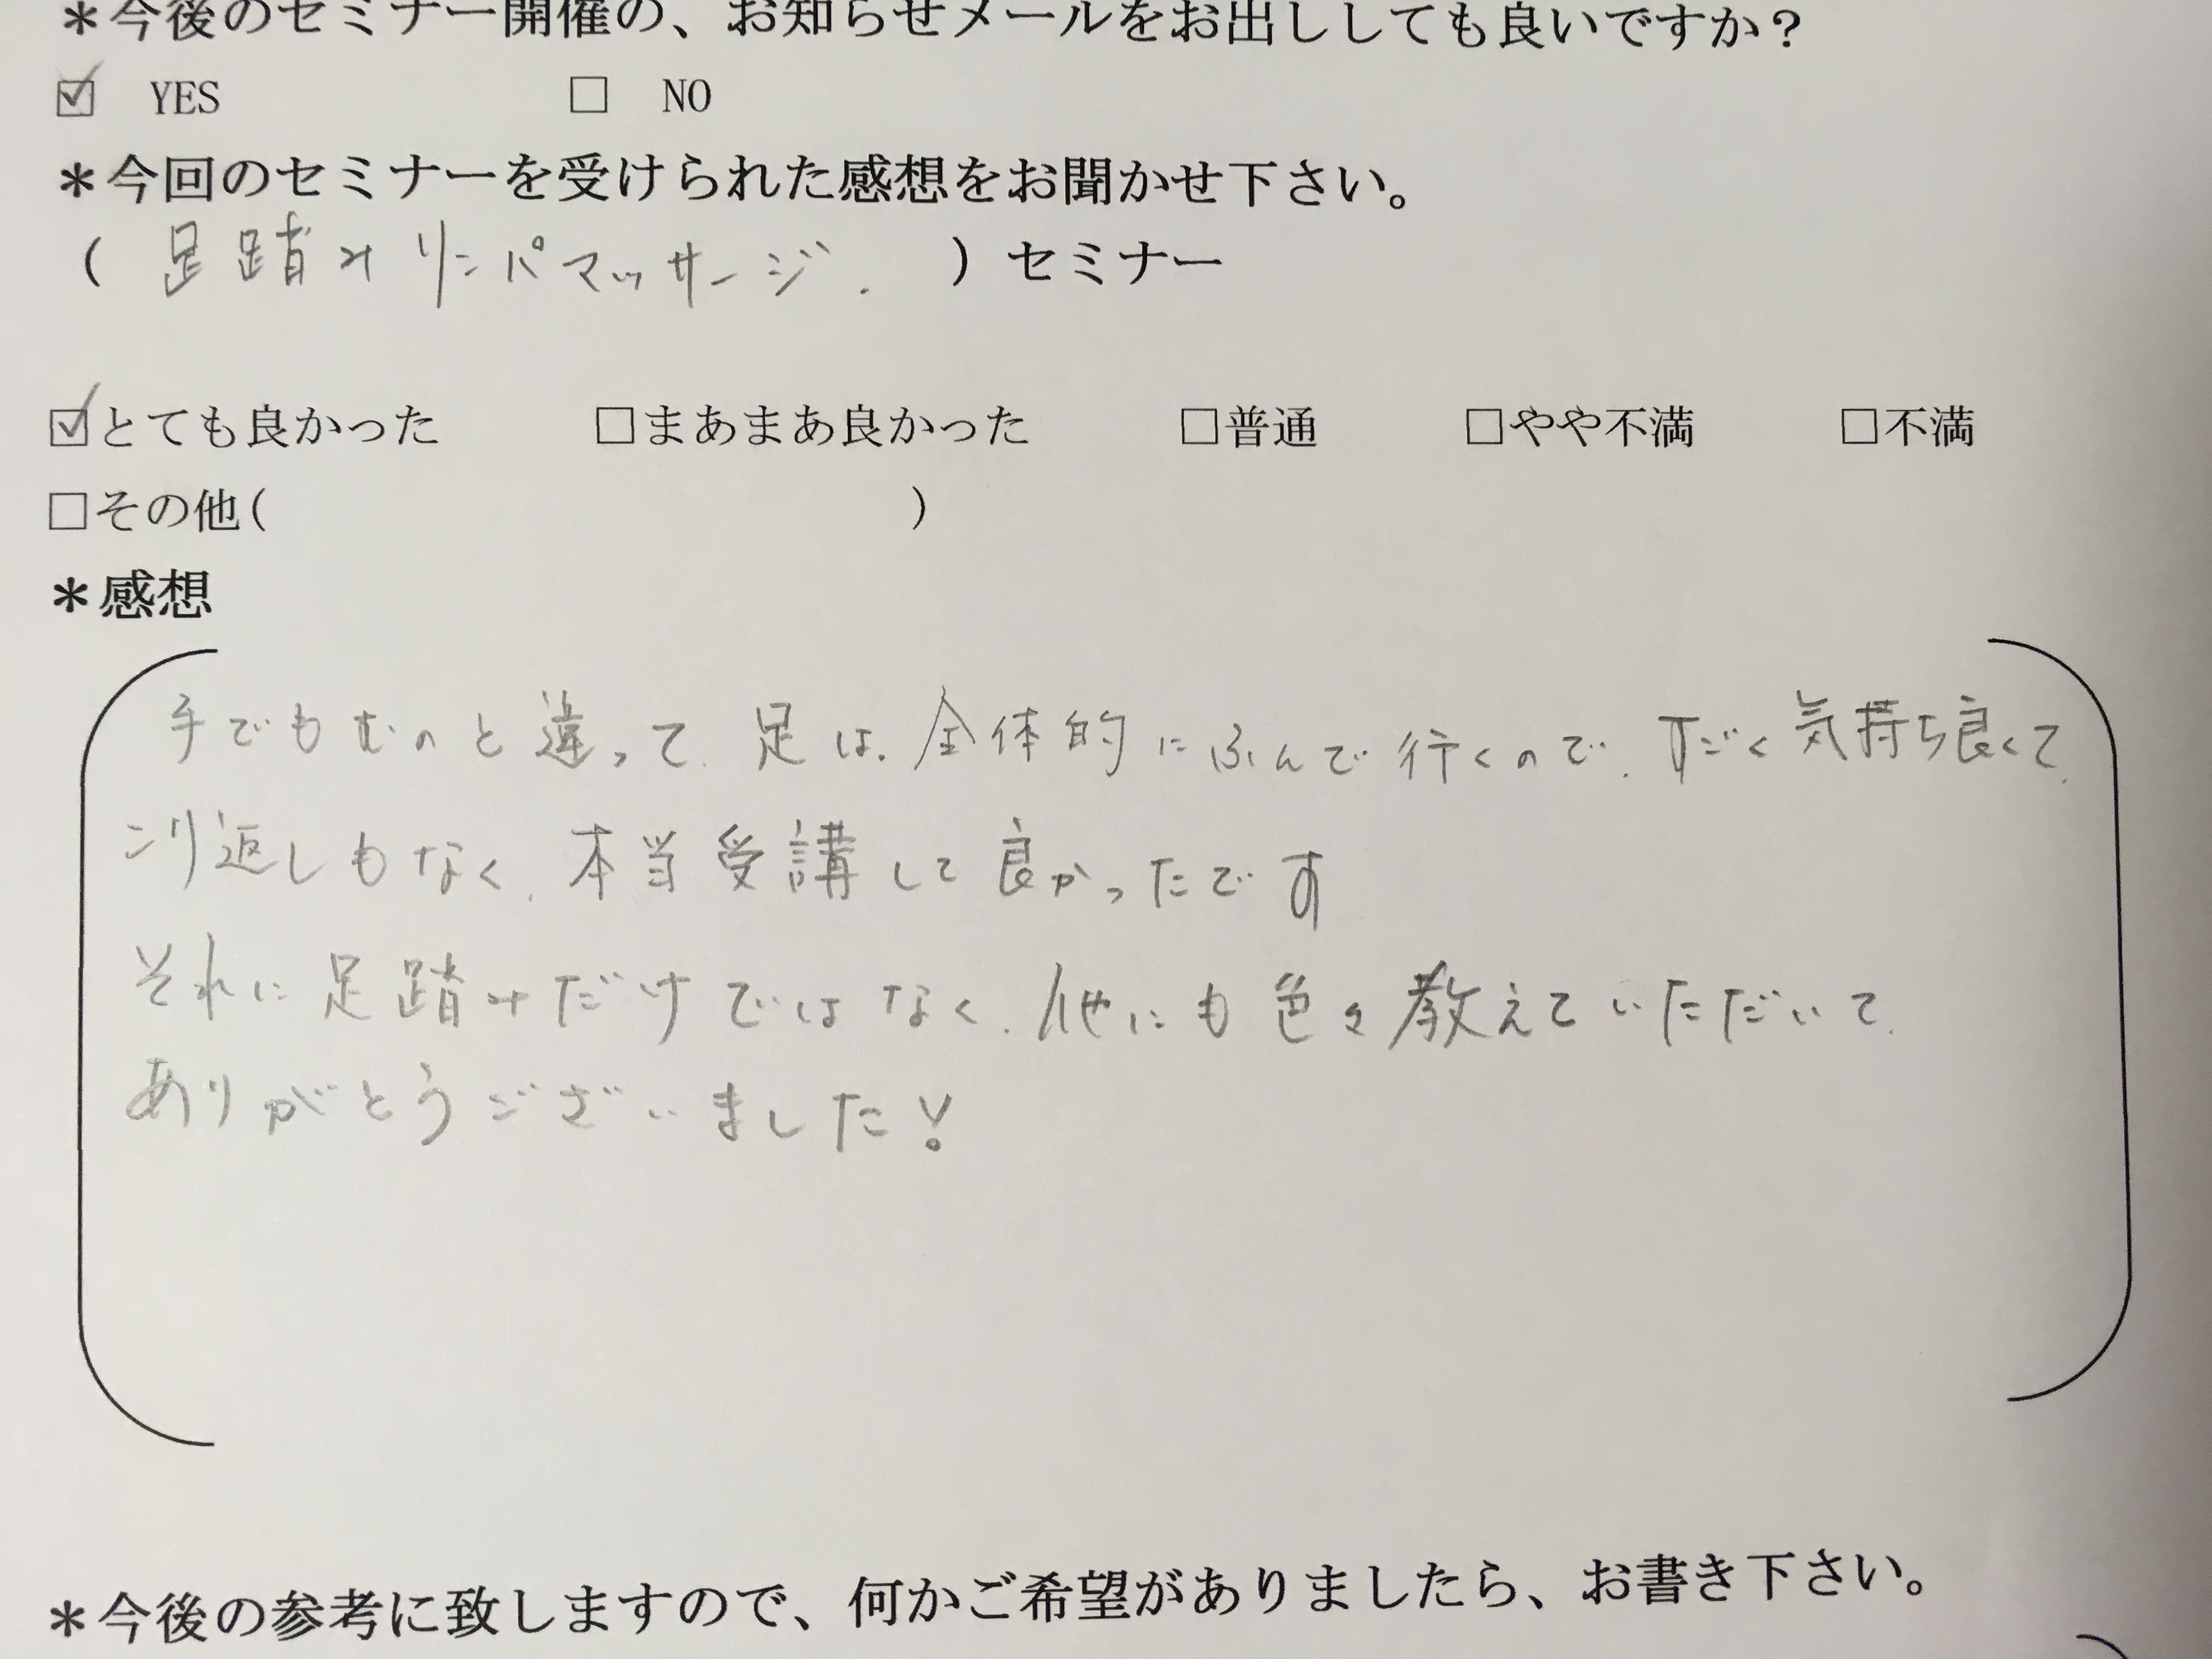 ＊今後のセミナー開催の、お知らせメールをお出ししても良いですか？
☑ YES □ NO
＊今回のセミナーを受けられた感想をお聞かせ下さい。
（ 足踏みリンパマッサージ. ）セミナー
☑とても良かった □まあまあ良かった □普通 □やや不満 □不満
□その他( )
＊感想
手でもむのと違って、足は、全体的にふんで行くので、すごく気持ち良くて、
こり返しもなく、本当受講して良かったです
それに足踏みだけではなく、他にも色々教えていただいて、
ありがとうございました!
＊今後の参考に致しますので、何かご希望がありましたら、お書き下さい。